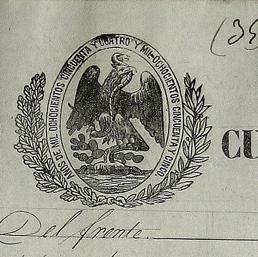 (39
AÑOS DE MIL OCHOCIENTOS CINCUENTA Y CUATRO Y MIL OCHOCIENTOS CINCUENTA Y CINCO.
CU
Del frente.